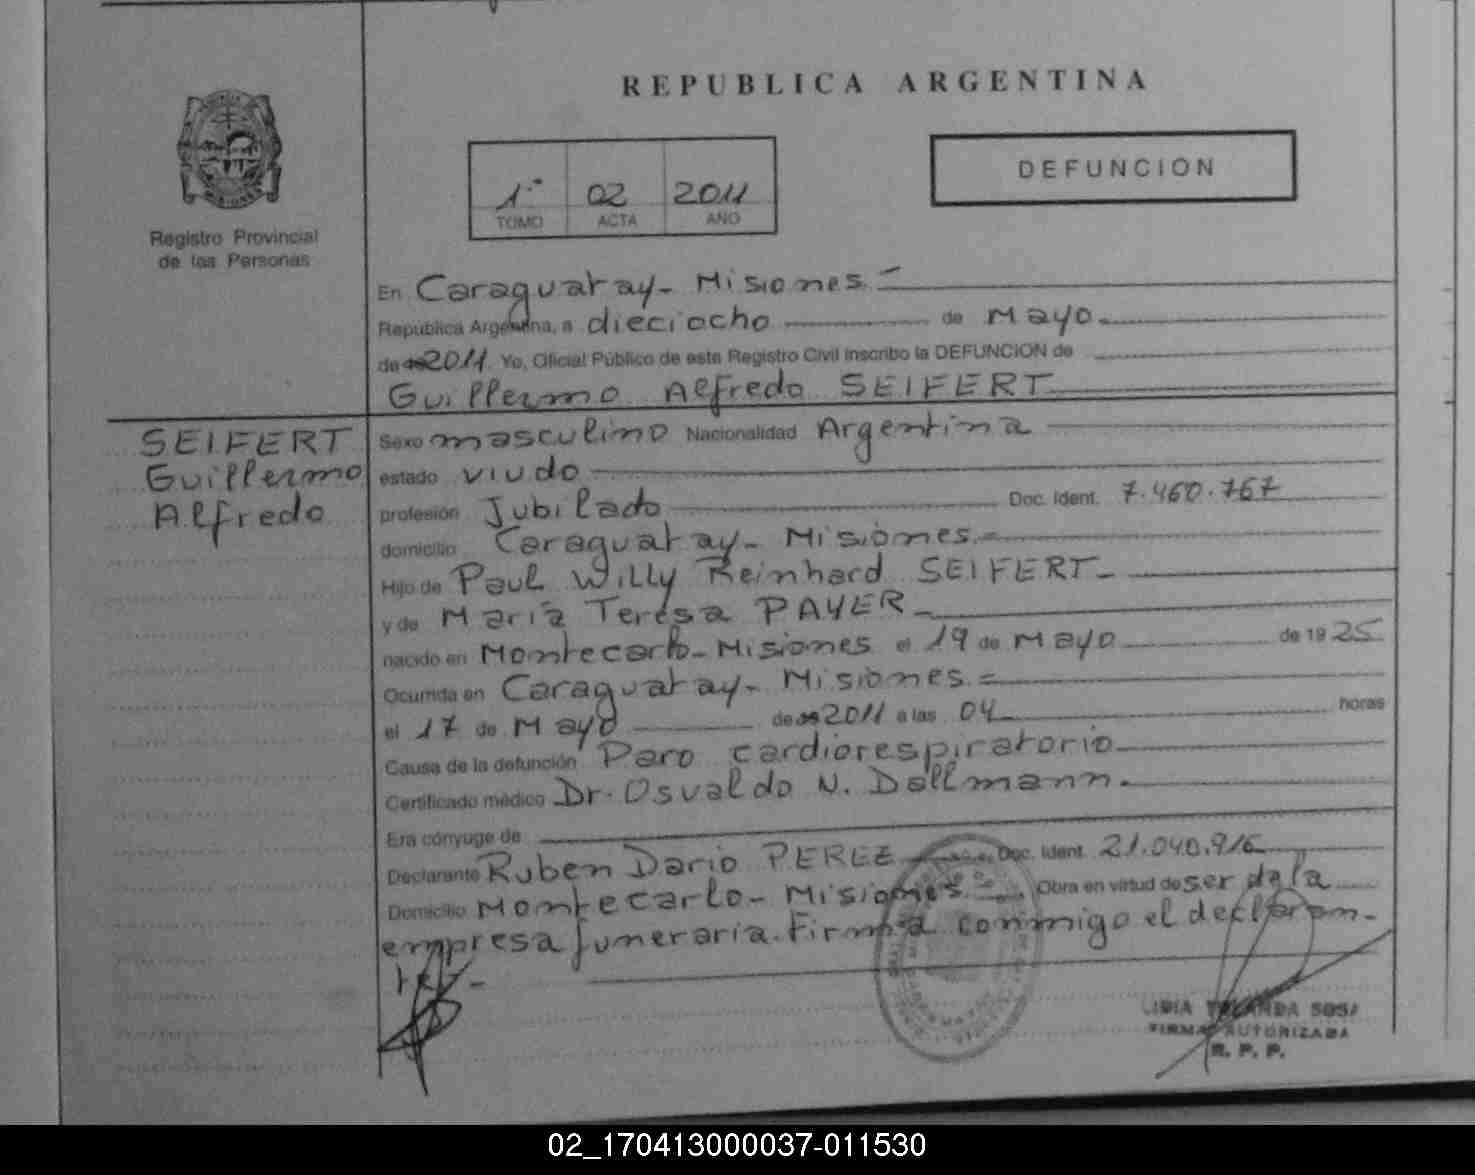 REPUBLICA ARGENTINA
DEFUNCION
1º 02 2011
TOMO ACTA AÑO
Registro Provincial
de las Personas
En Caraguatay - Misiones =
República Argentina, a dieciocho de Mayo
de 2011. Yo, Oficial Público de este Registro Civil inscribo la DEFUNCION de
Guillermo Alfredo SEIFERT
SEIFERT
Guillermo
Alfredo
Sexo masculino Nacionalidad Argentina
estado viudo
profesión Jubilado Doc. Ident. 7.460.767
domicilio Caraguatay - Misiones =
Hijo de Paul Willy Reinhard SEIFERT -
y de María Teresa PAYER -
nacido en Montecarlo - Misiones el 19 de Mayo de 1925
Ocurrida en Caraguatay - Misiones =
el 17 de Mayo de 2011 a las 04 horas
Causa de la defunción Paro cardiorespiratorio
Certificado médico Dr. Osvaldo N. Dallmann.
Era cónyuge de
Declarante Ruben Dario PEREZ Doc. Ident. 21.040.916
Domicilio Montecarlo - Misiones - Obra en virtud de ser de la
empresa funeraria. Firma conmigo el declaran-
te. -
LIDIA YOLANDA SOSA
FIRMA AUTORIZADA
R. P. P.
02_170413000037-011530